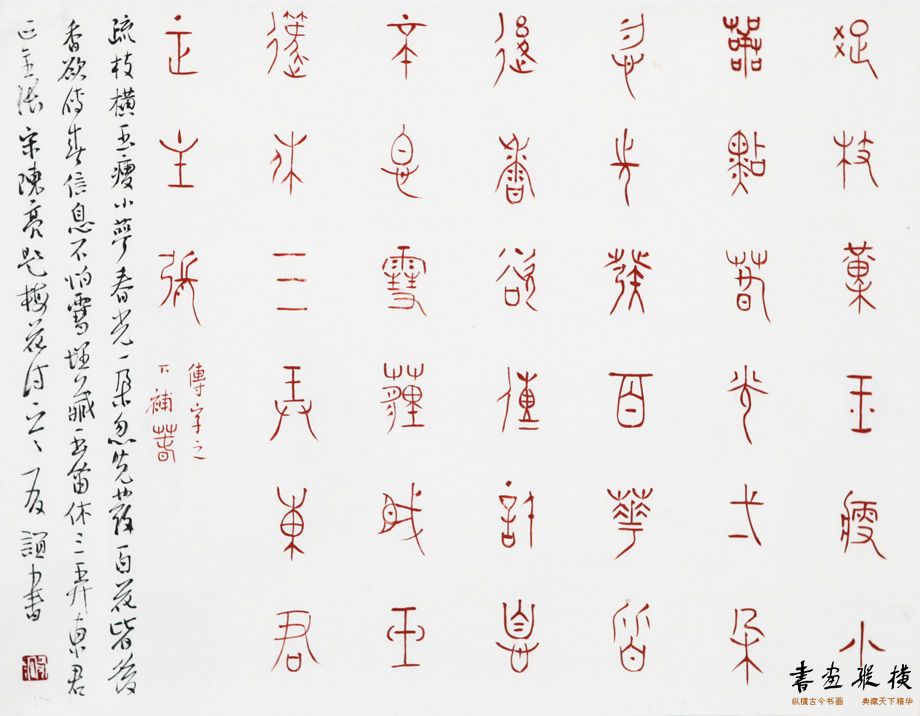 疏枝橫玉瘦小
萼點萅光弌朵
忽先發百華皆
後香欲傳信息
不怕雪薶藏玉
篴休三弄東君
正主張
傳字之
下補萅
疏枝橫玉瘦小萼春光一朵忽先發百花皆後
香欲傳春信息不怕雪埋藏玉笛休三弄東君
正主張 宋陳亮題梅花詩 書
書畫縱橫
纵横古今书画 典藏天下精华